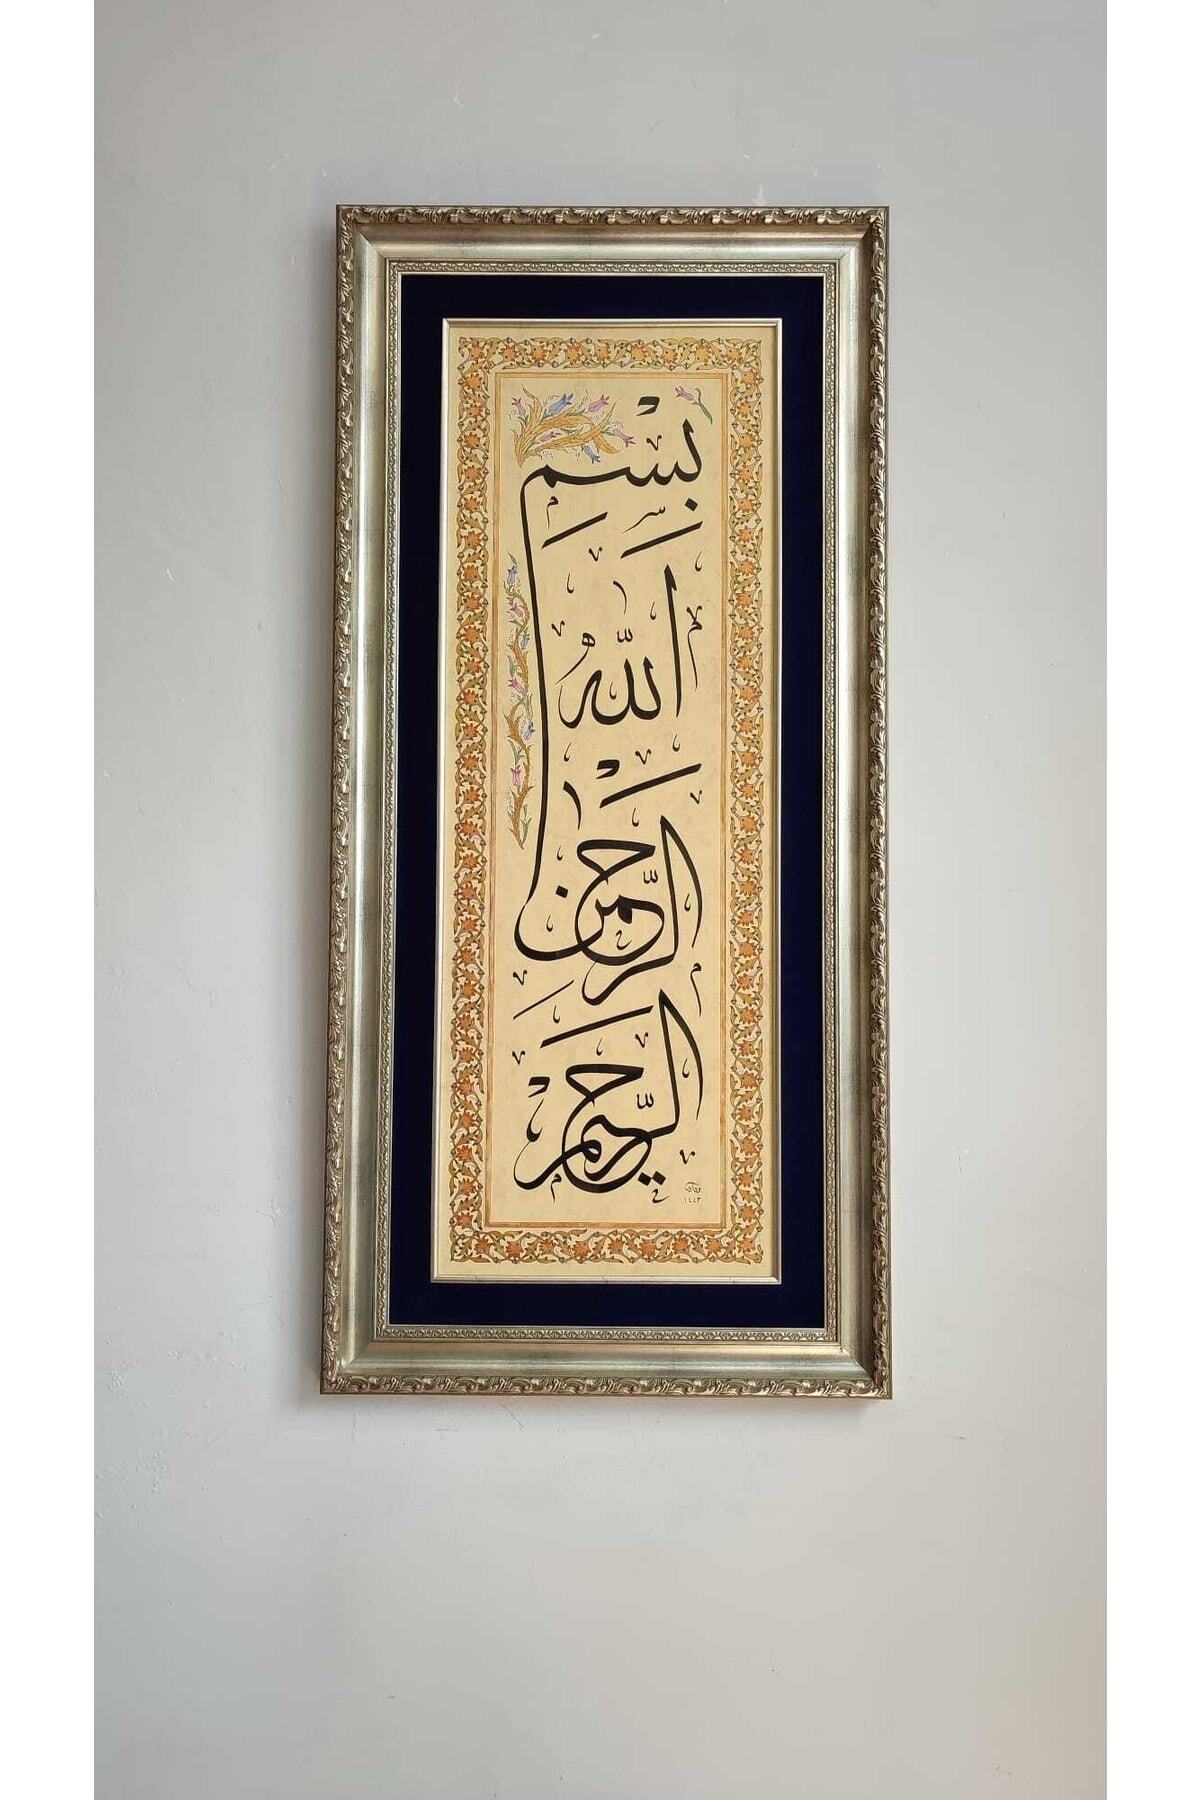 بِسْمِ
اللّٰهُ
الرَّحْمٰنِ
الرَّحِيمِ
١٤٤٣